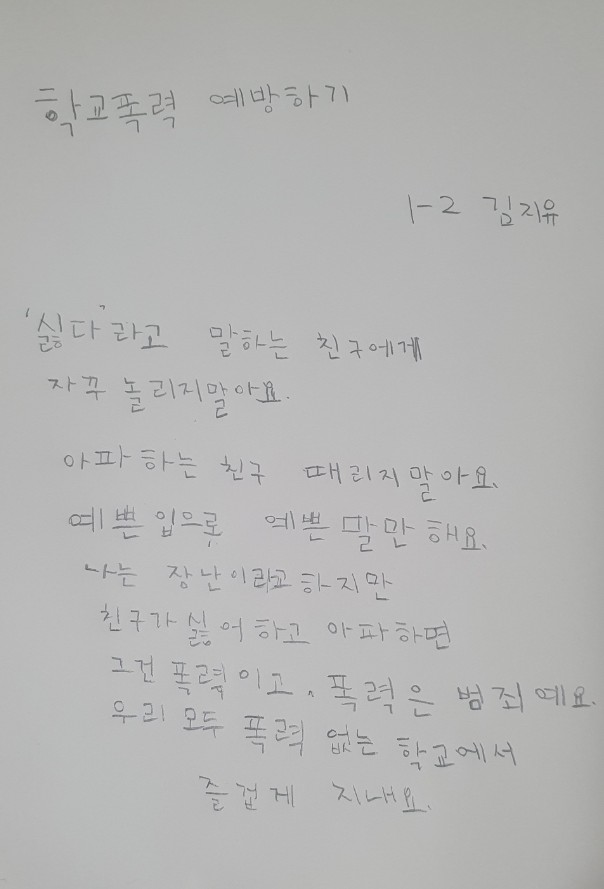 학교폭력 예방하기
1-2 김지유
'싫다'라고 말하는 친구에게
자꾸 놀리지말아요.
아파하는 친구 때리지말아요.
예쁜입으로 예쁜 말만 해요.
나는 장난이라고하지만
친구가 싫어하고 아파하면
그건 폭력이고, 폭력은 범죄예요.
우리 모두 폭력 없는 학교에서
즐겁게 지내요.